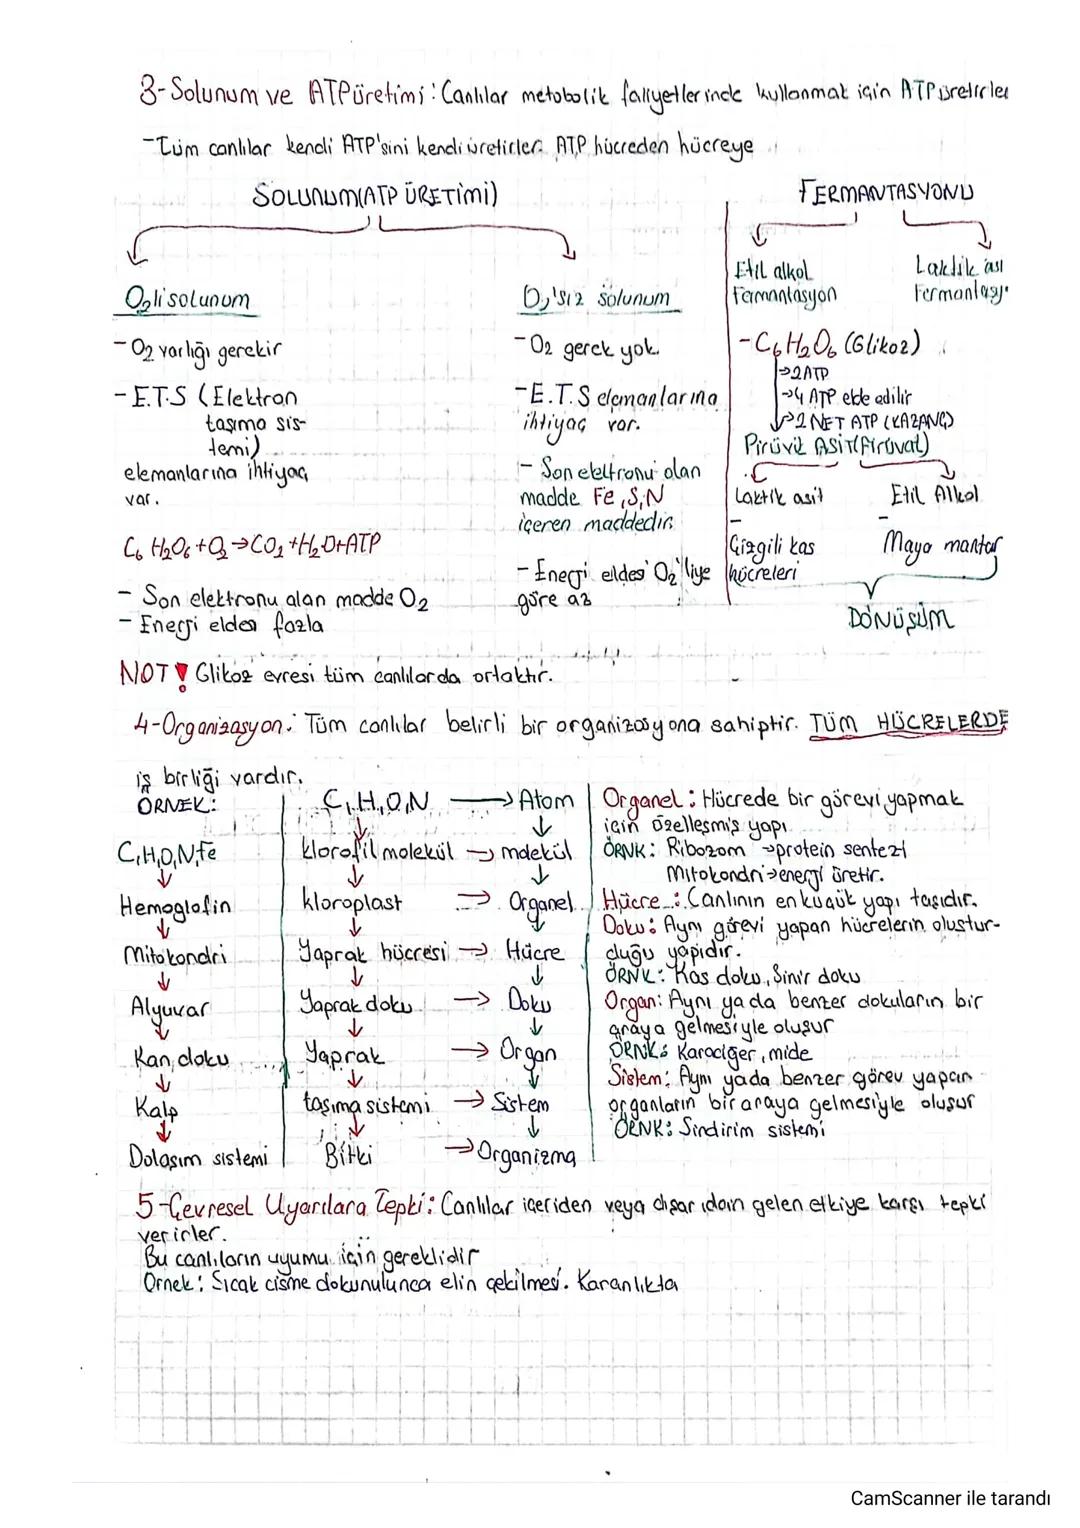 3-Solunum ve ATP üretimi: Canlılar metobolik faliyetlerinde kullanmak için ATP üretirler
-Tüm canlılar kendi ATP'sini kendi üretirler. ATP hücreden hücreye
SOLUNUM(ATP ÜRETİMİ)
O₂li solunum
-O₂ varlığı gerekir
-E.T.S (Elektron
taşıma sis-
temi)
elemanlarına ihtiyaç
var.
C₆ H₂O₆+O₂→CO₂+H₂O+ATP
- Son elektronu alan madde O₂
- Enerji eldesi fazla
O₂'siz solunum
-O₂ gerek yok.
-E.T.S elemanlarına
ihtiyaç var.
- Son elektronu alan
madde Fe,S,N
içeren maddedir.
-Enerji eldesi O₂'liye
göre az
FERMANTASYONU
Etil alkol
Fermantasyon
Laktik asi
Fermantasy
-C₆H₂O₆ (Glikoz)
→2ATP
→4 ATP elde edilir
→2 NET ATP (KAZANÇ)
Pirüvik ASİT(Pirüvat)
Laktik asit
-
Çizgili kas
hücreleri
Etil Alkol
-
Maya mantar
DÖNÜŞÜM
NOT! Glikoz evresi tüm canlılarda ortaktır.
4-Organizasyon: Tüm canlılar belirli bir organizasyona sahiptir. TÜM HÜCRELERDE
iş birliği vardır.
ÖRNEK:
C,H,O,N,Fe
↓
Hemoglobin
↓
Mitokondri
↓
Alyuvar
↓
Kan doku
↓
Kalp
↓
Dolaşım sistemi
C,H,O,N → Atom
↓ ↓
klorofil molekül → molekül
↓ ↓
kloroplast → Organel
↓ ↓
Yaprak hücresi → Hücre
↓ ↓
Yaprak doku → Doku
↓ ↓
Yaprak → Organ
↓ ↓
taşıma sistemi → Sistem
↓ ↓
Bitki → Organizma
Organel: Hücrede bir görevi yapmak
için özelleşmiş yapı
ÖRNK: Ribozom →protein sentezi
Mitokondri→enerji üretir.
Hücre: Canlının en küçük yapı taşıdır.
Doku: Aynı görevi yapan hücrelerin oluştur-
duğu yapıdır.
ÖRNK: Kas doku, Sinir doku
Organ: Aynı ya da benzer dokuların bir
araya gelmesiyle oluşur
ÖRNK: Karaciğer, mide
Sistem: Aynı yada benzer görev yapan
organların bir araya gelmesiyle oluşur
ÖRNK: Sindirim sistemi
5-Çevresel Uyarılara Tepki: Canlılar içeriden veya dışarıdan gelen etkiye karşı tepki
verirler.
Bu canlıların uyumu için gereklidir
Örnek: Sıcak cisme dokunulunca elin çekilmesi. Karanlıkta
CamScanner ile tarandı